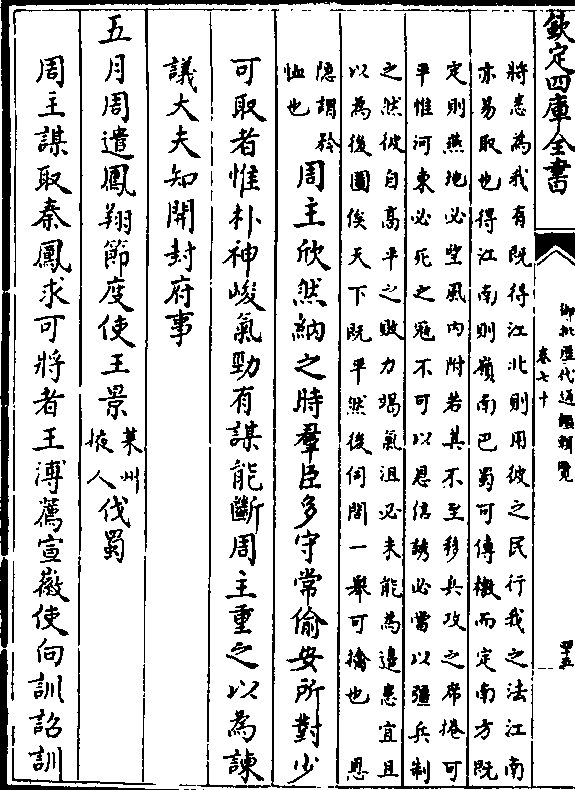 欽定四庫全書
御批歷代通鑑輯覽
卷七十
四五
將悉為我有既得江北則用彼之民行我之法江南
亦易取也得江南則嶺南巴蜀可傳檄而定南方既
定則燕地必望風内附若其不至移兵攻之席捲可
平惟河東必死之寇不可以恩信誘必當以彊兵制
之然彼自高平之敗力竭氣沮必未能為邊患宜且
以為後圖俟天下既平然後伺間一舉可擒也 恩
隱謂矜
恤也
周主欣然納之時羣臣多守常偷安所對少
可取者惟朴神峻氣勁有謀能斷周主重之以為諫
議大夫知開封府事
五月周遣鳳翔節度使王景萊州掖人伐蜀
周主謀取秦鳳求可將者王溥薦宣徽使向訓詔訓